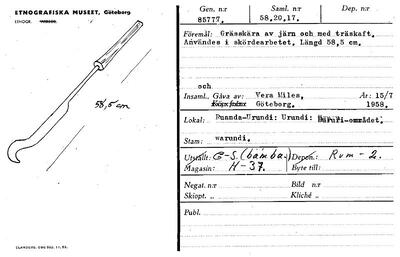 ETNOGRAFISKA MUSEET, Göteborg
ETNOGR.
58,5 cm
Gen. n:r
85777.
Saml. n:r
58.20.17.
Dep. n:r
Föremål: Grässkära av järn och med träskaft.
Användes i skördearbetet. Längd 58,5 cm.
och
Insaml., Gåva av Vera Miles, År: 15/7
Göteborg. 1958.
Lokal: Ruanda-Urundi: Urundi: Bururi-området.
Stam: warundi.
Utställt: E-S. (bamba.) Depon.: Rum - 2.
Magasin: H-37. Byte till:
Negat. n:r Bild n:r
Skiopt. „ Kliché „
Publ.